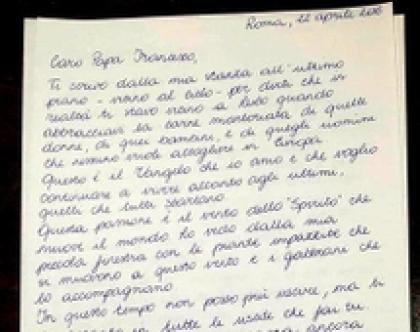 Roma, 22 aprile 2016
Caro Papa Francesco,
Ti scrivo dalla mia stanza all'ultimo
piano - vicino al cielo - per dirti che in
realtà ti stavo vicino a Lesbo quando
abbracciavi la carne martoriata di quelle
donne, di quei bambini, e di quegli uomini
che nessuno vuole accogliere in Europa
Questo è il Vangelo che io amo e che voglio
continuare a vivere accanto agli ultimi,
quelli che tutti scartano.
Questa passione è il vento dello "Spirito" che
muove il mondo lo vedo dalla mia
piccola finestra con le piante impazzite che
si muovono a questo vento e i gabbiani che
lo accompagnano
In questo tempo non posso più uscire, ma ti
in tutte le uscite che fai tu.
ancora